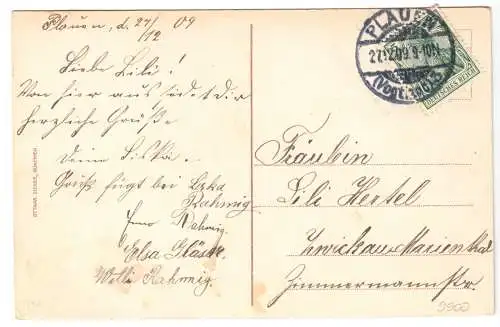 Plauen, d. 27/12 09
Liebe Lili!
Von hier aus sendet dir
herzliche Grüße
Deine Liska.
Gruß fügt bei
Rahmig
Rahmig.
Elsa
Willi Rahmig.
OTTMAR ZIEHER, MÜNCHEN
PLAUEN
27.12.09 9-10N
(Vogtl.)
DEUTSCHES REICH
Fräulein
Lili Hertel
Zwickau-Marienthal
Zimmermannstr.